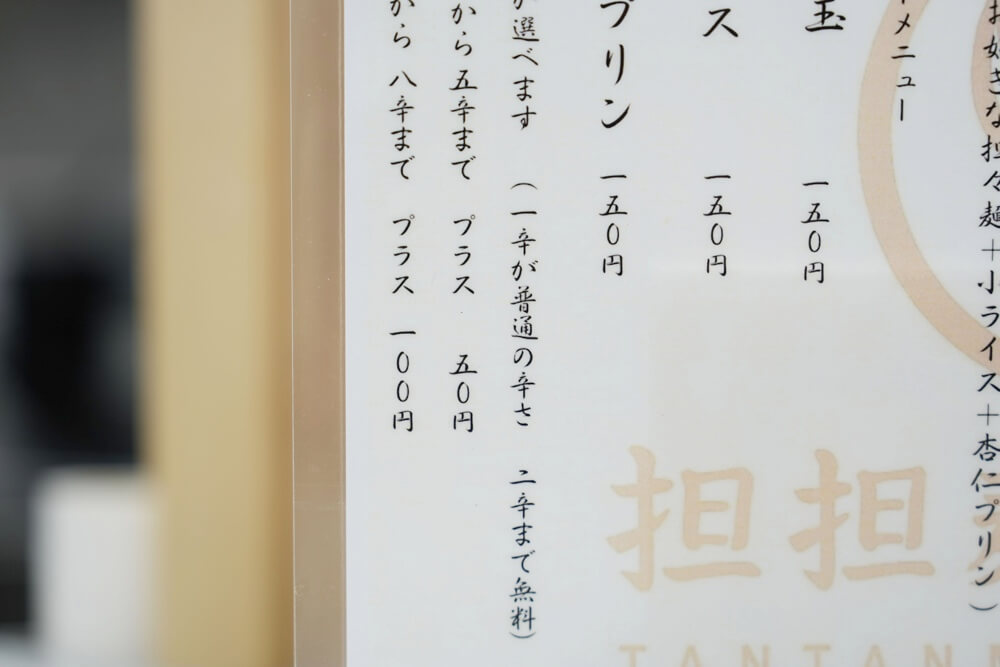 お好きな担々麺+小ライス+杏仁プリン)
メニュー
玉 一五〇円
ス 一五〇円
プリン 一五〇円
が選べます (一辛が普通の辛さ 二辛まで無料)
から五辛まで プラス 五〇円
から八辛まで プラス 一〇〇円
担担
TANTAN